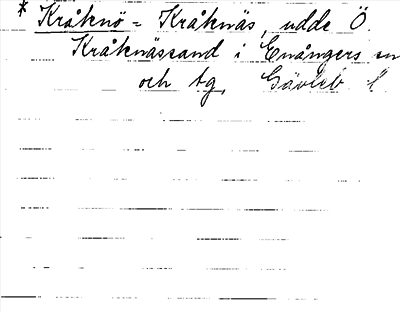 * Kråknö = Kråknäs, udde Ö.
Kråknässand i Enångers sn
och tg, Gävleb. l.